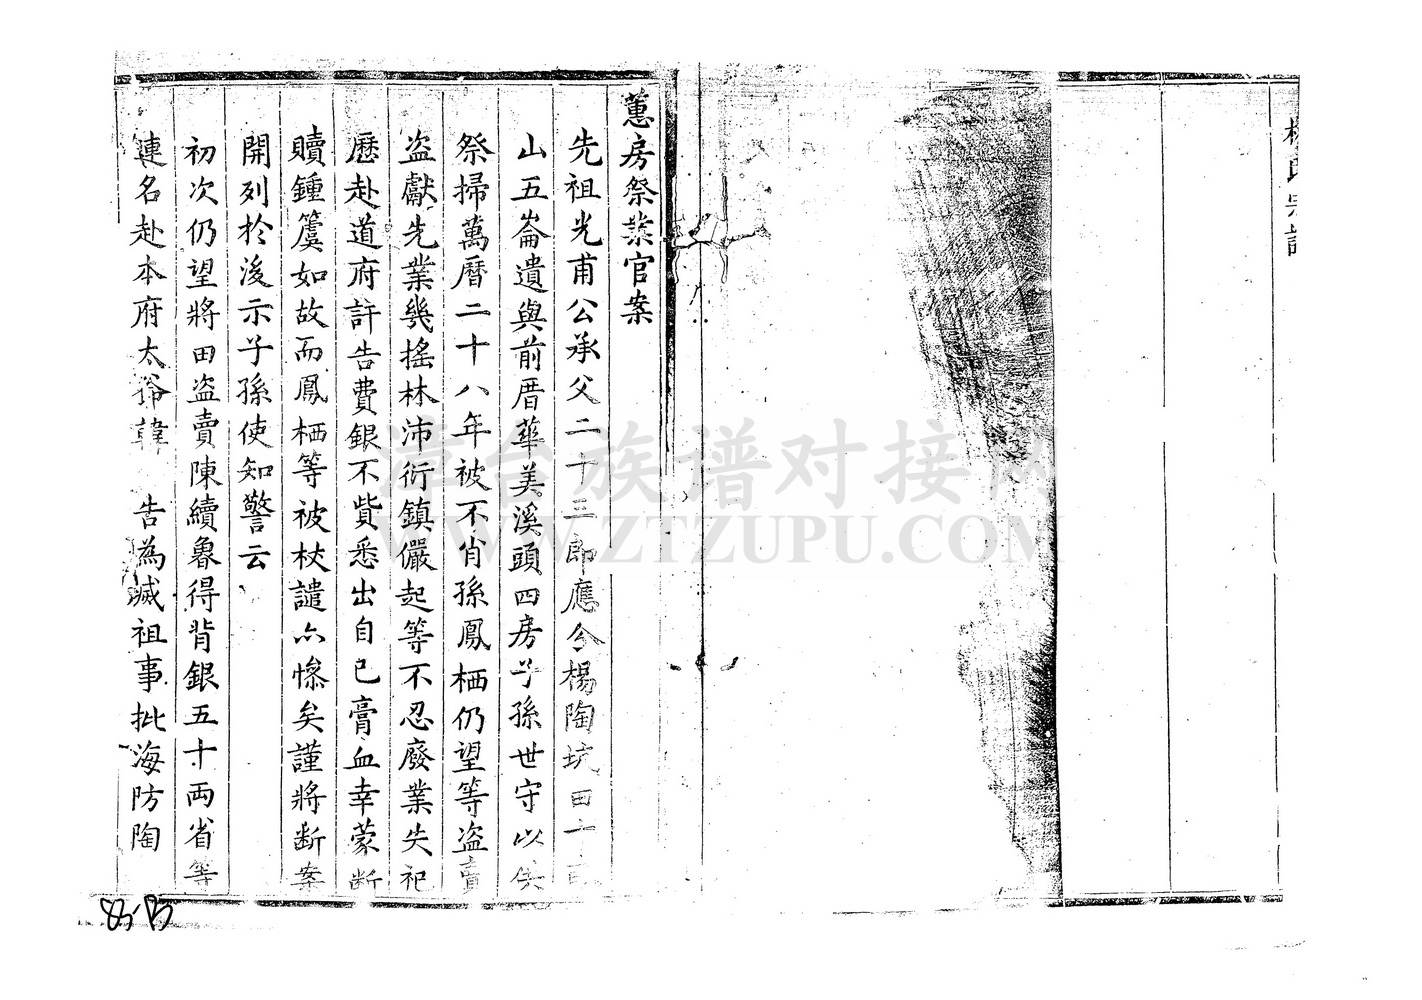 楊氏宗譜
蕙房祭業官案
先祖光甫公承父二十三郎應分楊陶坑田十
山五崙遺與前厝華美溪頭四房子孫世守以供
祭掃萬曆二十八年被不肖孫鳳栖仍望等盗賣
盗獻先業幾搖林沛衍鎮儼起等不忍廢業失祀
歷赴道府訐告費銀不貲悉出自己膏血幸蒙断
贖鍾簴如故而鳳栖等被杖譴亦慘矣謹將断案
開列於後示子孫使知警云
初次仍望將田盗賣陳續魯得背銀五十両省等
連名赴本府太爷韓 告為滅祖事批海防陶
漳台族谱对接网
WWW.ZTZUPU.COM